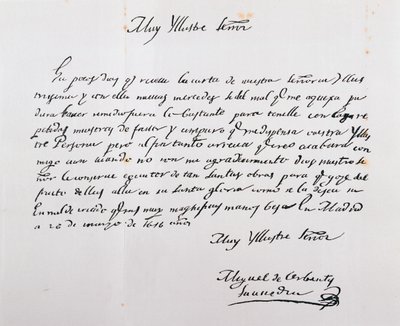 Muy Yllustre Señor
Ha pocos dias q receui la carta de vuestra Señoria Yllus
trissima y con ella nueuas mercedes si del mal q me aquexa pu
diera hauer remedio fuera lo bastante para tenelle con las re
petidas muestras de fauor y amparo q me dispensa vuestra Yllus
tre Persona pero al fin tanto arrecia q creo acabara con
migo aun quando no con mi agradescimiento dios nuestro se
ñor le conserue egecutor de tan santas obras para q goze del
fructo dellas alla en su santa gloria como se la desea su
humilde criado q sus muy magnificas manos besa En Madrid
a 26 de março de 1616 años
Muy Yllustre Señor
Miguel de Cerbantes
Saauedra